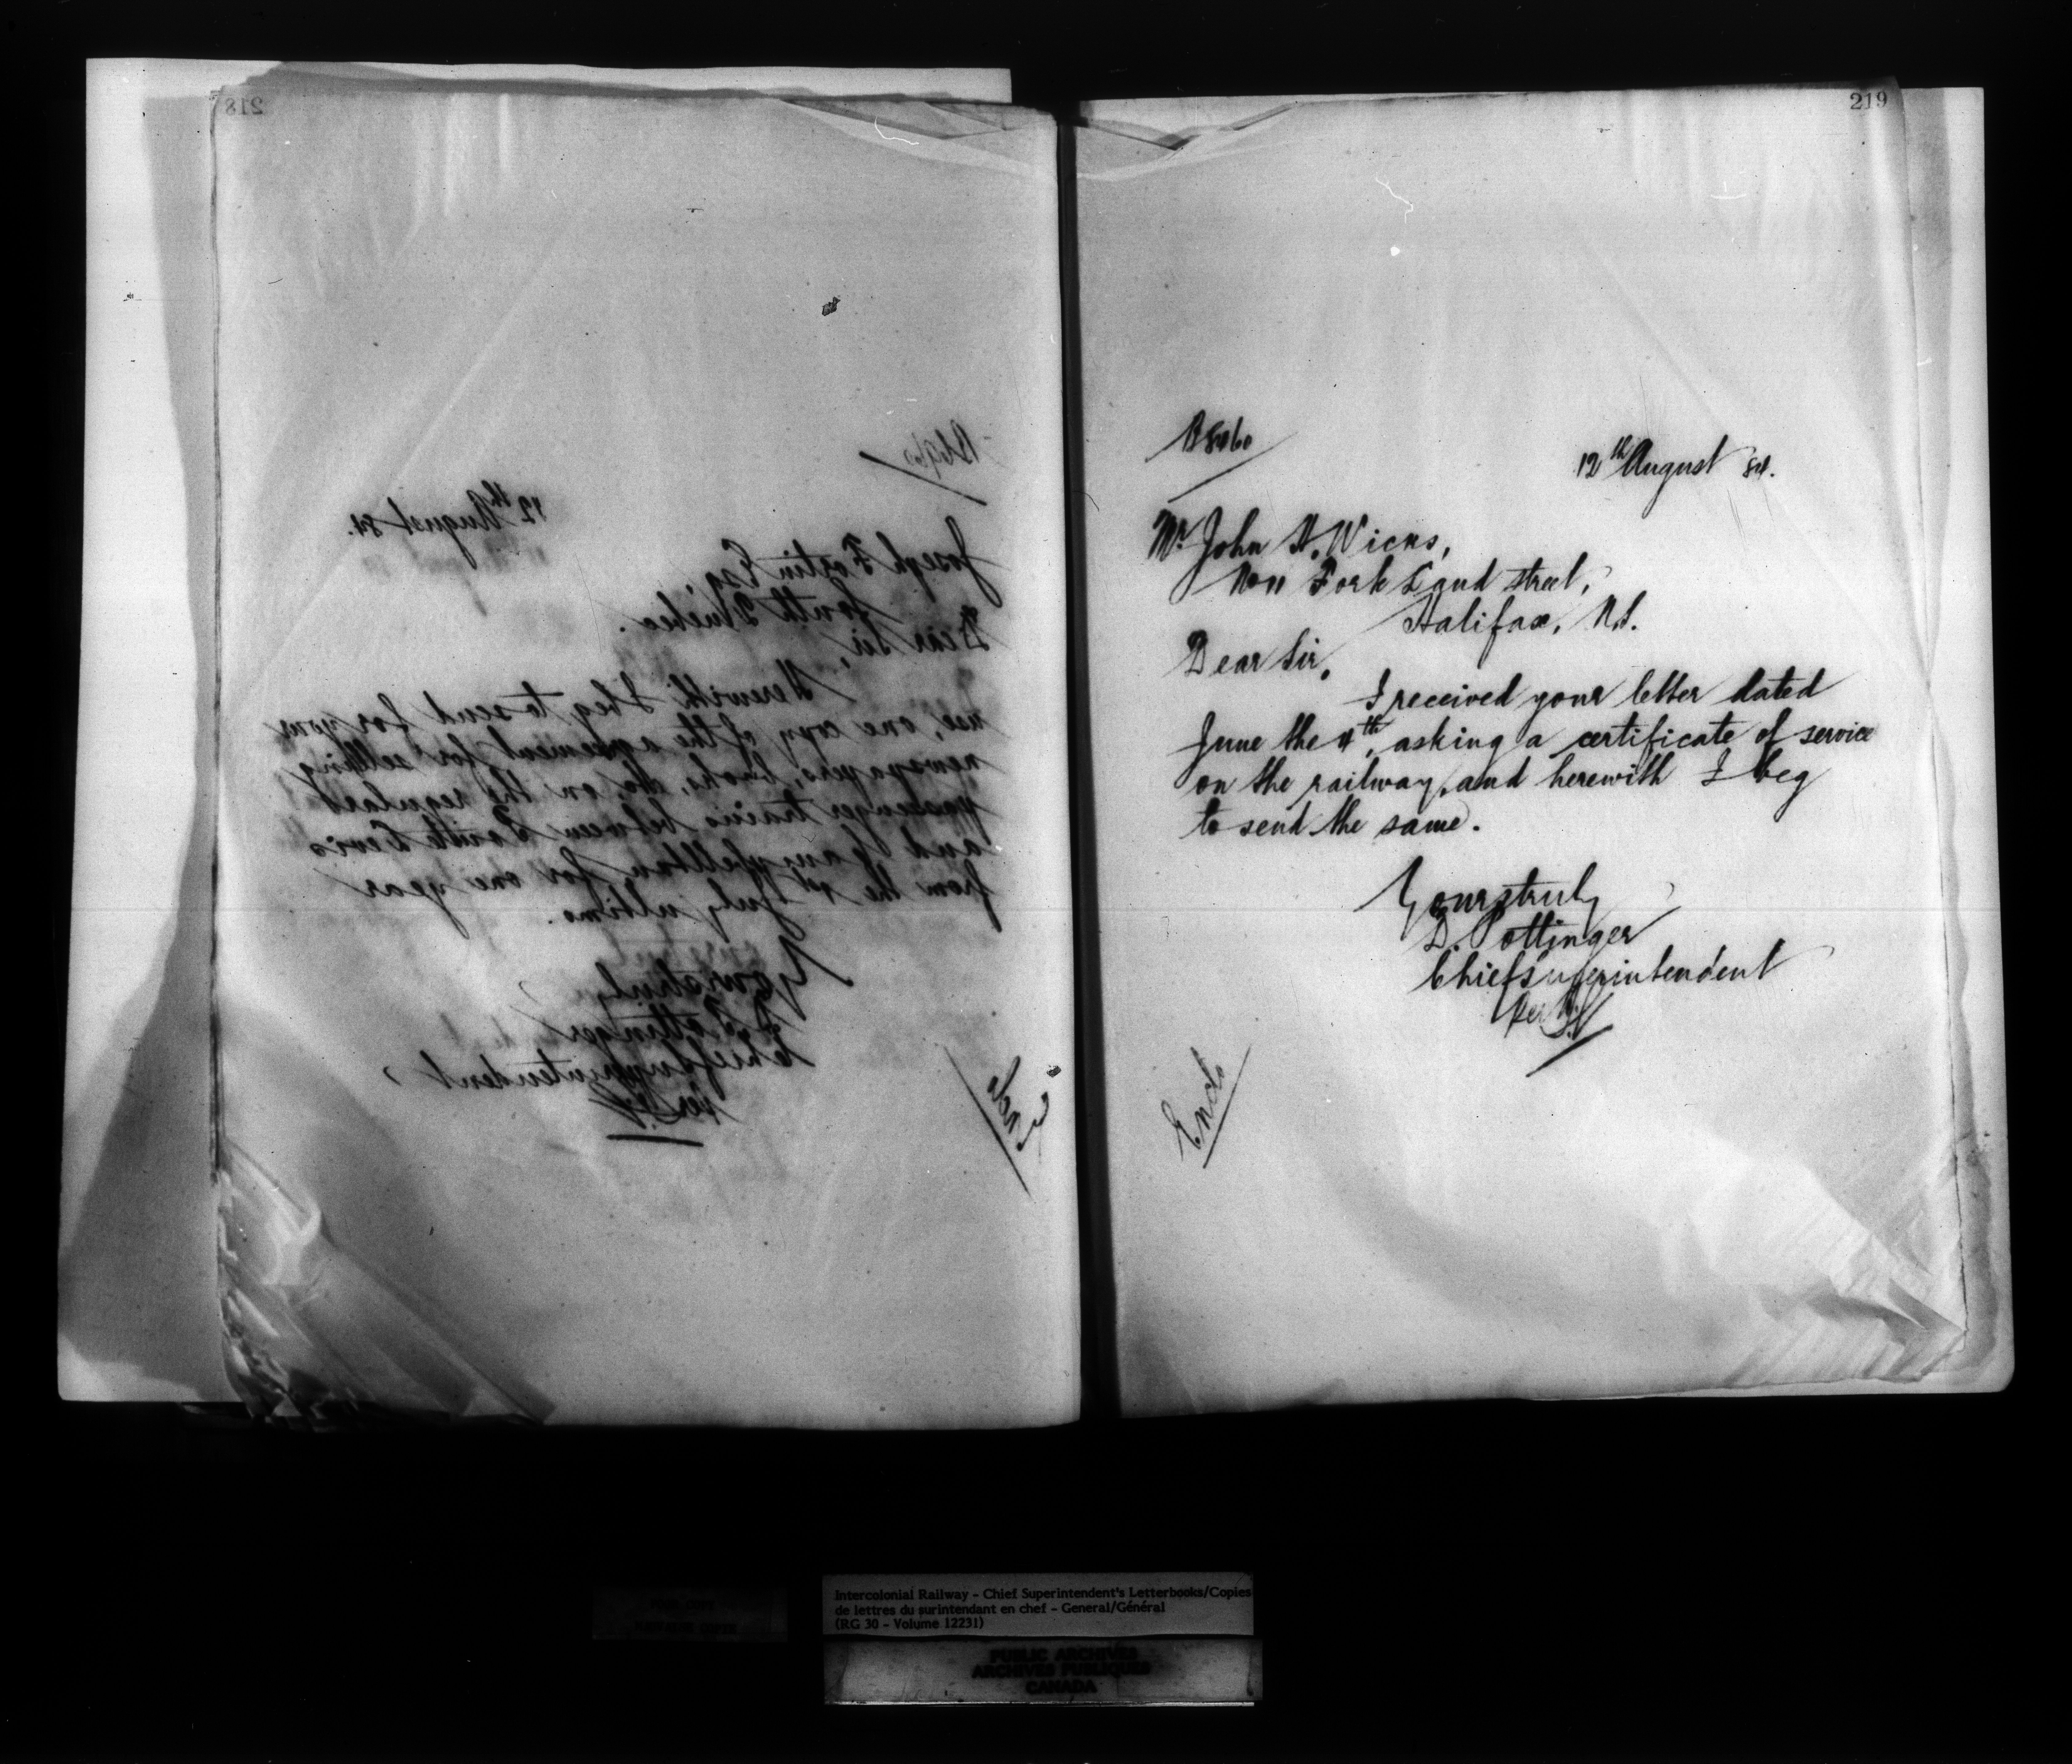 218
12th August 84.
Joseph Fortin Esq,
South Quebec.
Dear Sir,
Herewith I beg to send for your
use, one copy of the agreement for selling
newspapers, books, &c on the regular
passenger trains between Pointe Levis
and Campbellton for one year
from the 1st July ultimo.
Yours truly
D. Pottinger
Chief Superintendent
Per
Encl.
219
12th August 84.
Mr John H. Wicks,
Fork Land Street,
Halifax, N.S.
Dear Sir,
I received your letter dated
June the 4th, asking a certificate of service
on the railway, and herewith I beg
to send the same.
Yours truly
D. Pottinger
Chief Superintendent
Per
Encl.
Intercolonial Railway - Chief Superintendent's Letterbooks/Copies
de lettres du surintendant en chef - General/Général
(RG 30 - Volume 12231)
PUBLIC ARCHIVES
ARCHIVES PUBLIQUES
CANADA